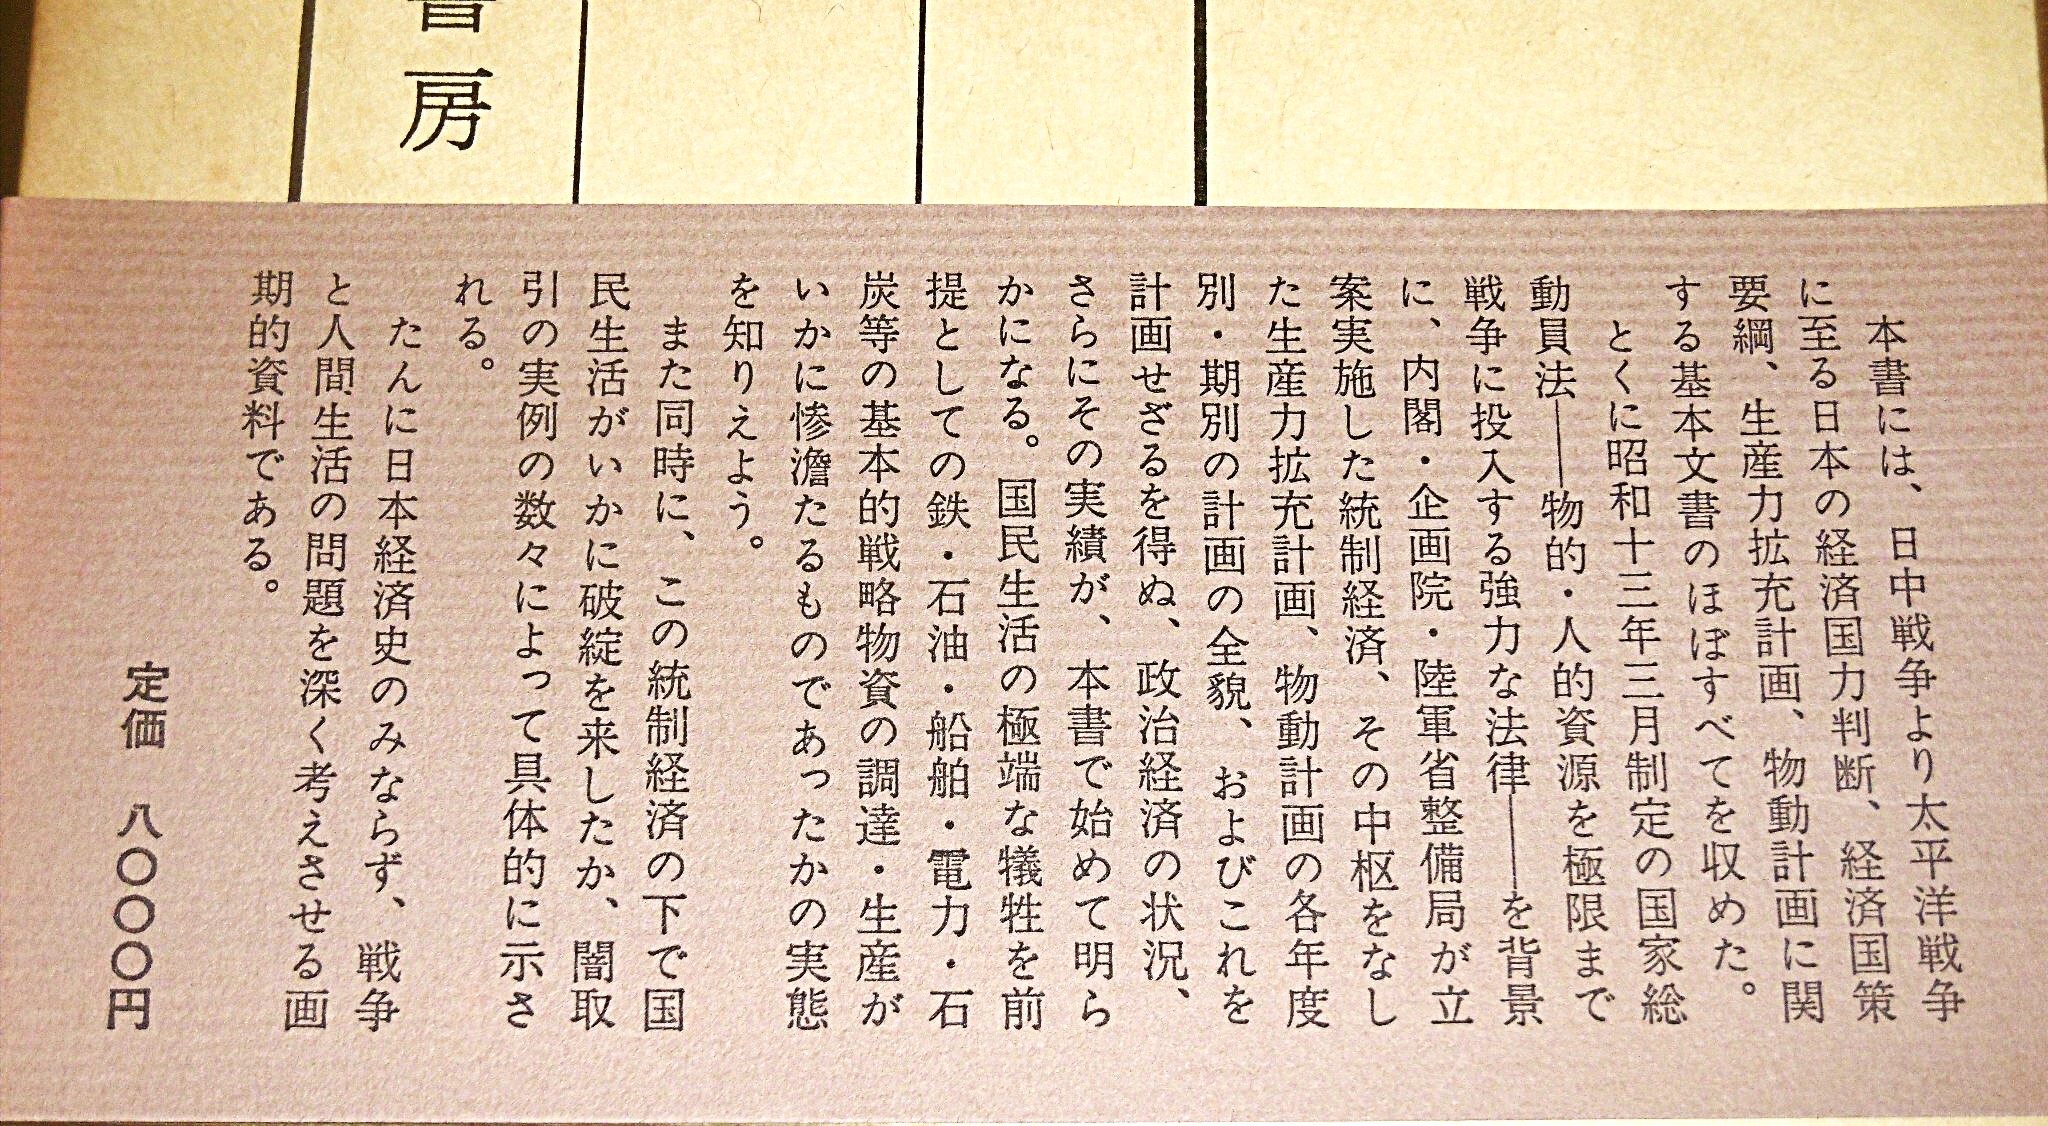 書房
本書には、日中戦争より太平洋戦争
に至る日本の経済国力判断、経済国策
要綱、生産力拡充計画、物動計画に関
する基本文書のほぼすべてを収めた。
とくに昭和十三年三月制定の国家総
動員法――物的・人的資源を極限まで
戦争に投入する強力な法律――を背景
に、内閣・企画院・陸軍省整備局が立
案実施した統制経済、その中枢をなし
た生産力拡充計画、物動計画の各年度
別・期別の計画の全貌、およびこれを
計画せざるを得ぬ、政治経済の状況、
さらにその実績が、本書で始めて明ら
かになる。国民生活の極端な犠牲を前
提としての鉄・石油・船舶・電力・石
炭等の基本的戦略物資の調達・生産が
いかに惨澹たるものであったかの実態
を知りえよう。
また同時に、この統制経済の下で国
民生活がいかに破綻を来したか、闇取
引の実例の数々によって具体的に示さ
れる。
たんに日本経済史のみならず、戦争
と人間生活の問題を深く考えさせる画
期的資料である。
定価 八〇〇〇円